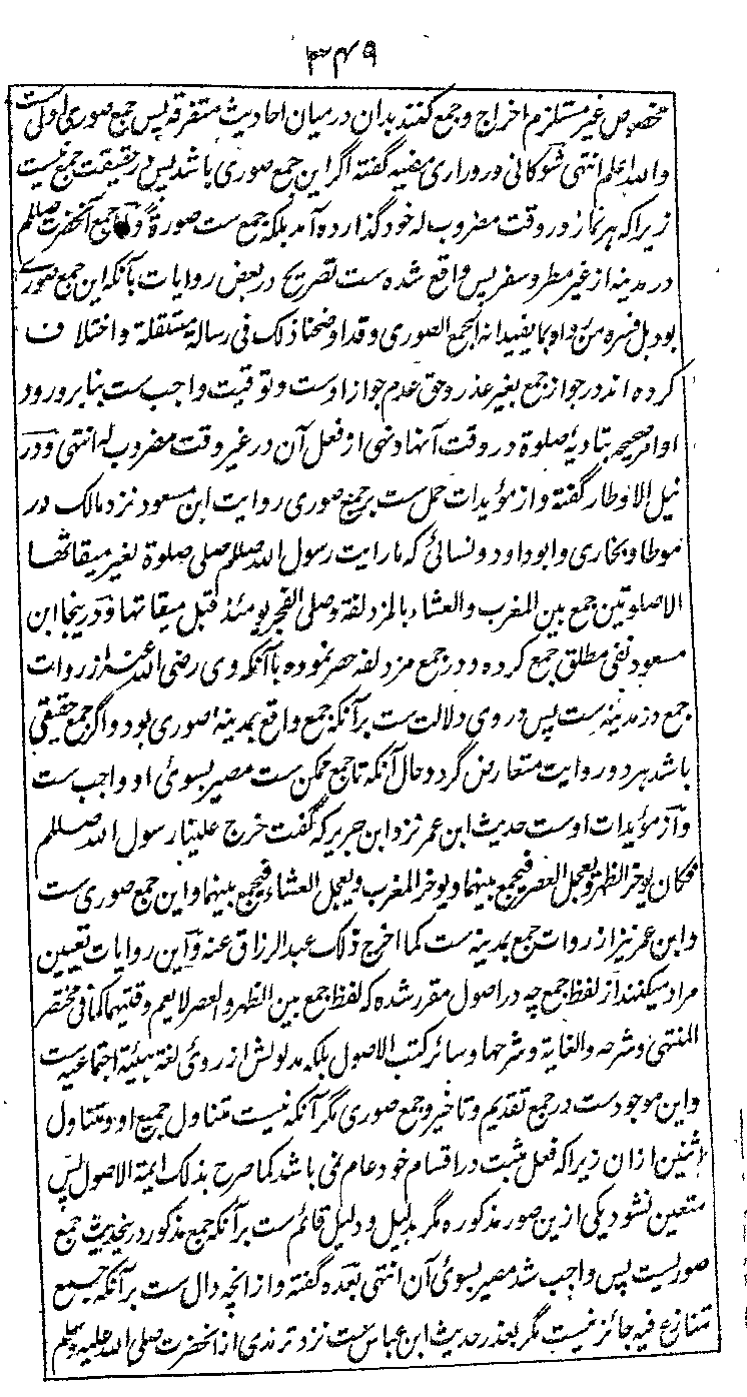 ۳۴۹
مخصوص غیر مستلزم اخراج و جمع کنند بدان درمیان احادیث متفرقه پس جمع صوری اولی ست
واللہ اعلم انتهی شوکانی در دراری مضیه گفته اگر این جمع صوری باشد پس در حقیقت جمع نیست
زیرا که هر نماز در وقت مضروب له خود گذارده آمد بلکه جمع ست صورةً و جمع آنحضرت صللم
در مدینه از غیر مطر و سفر پس واقع شده ست تصریح در بعض روایات بآنکه این جمع صوری
بود بل فسره من رواه بما یفید انه الجمع الصوری وقد اوضحنا ذلک فی رسالة مستقلة و اختلاف
کرده اند در جواز جمع بغیر عذر و حق عدم جواز اوست و توقیت واجب ست بنابر ورود
اوامر صحیحه بتادیهٔ صلوة در وقت آنها و نهی از فعل آن در غیر وقت مضروب له انتهی و در
نیل الاوطار گفته و از مؤیدات حمل ست بر جمع صوری روایت ابن مسعود نزد مالک در
موطا و بخاری و ابو داود و نسائی که ما رایت رسول اللہ صللم صلی صلوة لغیر میقاتها
الا صلوتین جمع بین المغرب والعشاء بالمزدلفة وصلی الفجر یومئذ قبل میقاتها و درینجا ابن
مسعود نفی مطلق جمع کرده و در جمع مزدلفه حصر نموده باآنکه وی رضی اللہ عنه از روات
جمع در مدینه ست پس در وی دلالت ست برآنکه جمع واقع بمدینه صوری بود و اگر جمع حقیقی
باشد هر دو روایت متعارض گردد و حال آنکه تا جمع ممکن ست مصیر بسوئ او واجب ست
و از مؤیدات اوست حدیث ابن عمر نزد ابن جریر که گفت خرج علینا رسول اللہ صللم
فکان یؤخر الظهر ویعجل العصر فیجمع بینهما ویوخر المغرب ویعجل العشاء فیجمع بینهما و این جمع صوری ست
و ابن عمر نیز از روات جمع بمدینه ست کما اخرج ذلک عبدالرزاق عنه و این روایات تعیین
مراد میکنند از لفظ جمع چه در اصول مقرر شده که لفظ جمع بین الظهر والعصر لا یعم وقتیهما کما فی مختصر
المنتهی وشرحه والغایة وشرحها وسائر کتب الاصول بلکه مدلولش از روئ لغة هیئة اجتماعیه ست
و این موجود ست در جمع تقدیم و تاخیر و جمع صوری مگر آنکه نیست متناول جمیع او و متناول
اثنین ازان زیرا که فعل مثبت در اقسام خود عام نمی باشد کما صرح بذلک ایمة الاصول پس
متعین نشود یکی ازین صور مذکوره مگر بدلیل و دلیل قائم ست برآنکه جمع مذکور درینحدیث جمع
صوریست پس واجب شد مصیر بسوئ آن انتهی بعده گفته و از انچه دال ست برآنکه جمع
متنازع فیه جائز نیست مگر بعذر حدیث ابن عباس ست نزد ترمذی از آنحضرت صلی اللہ علیه وسلم